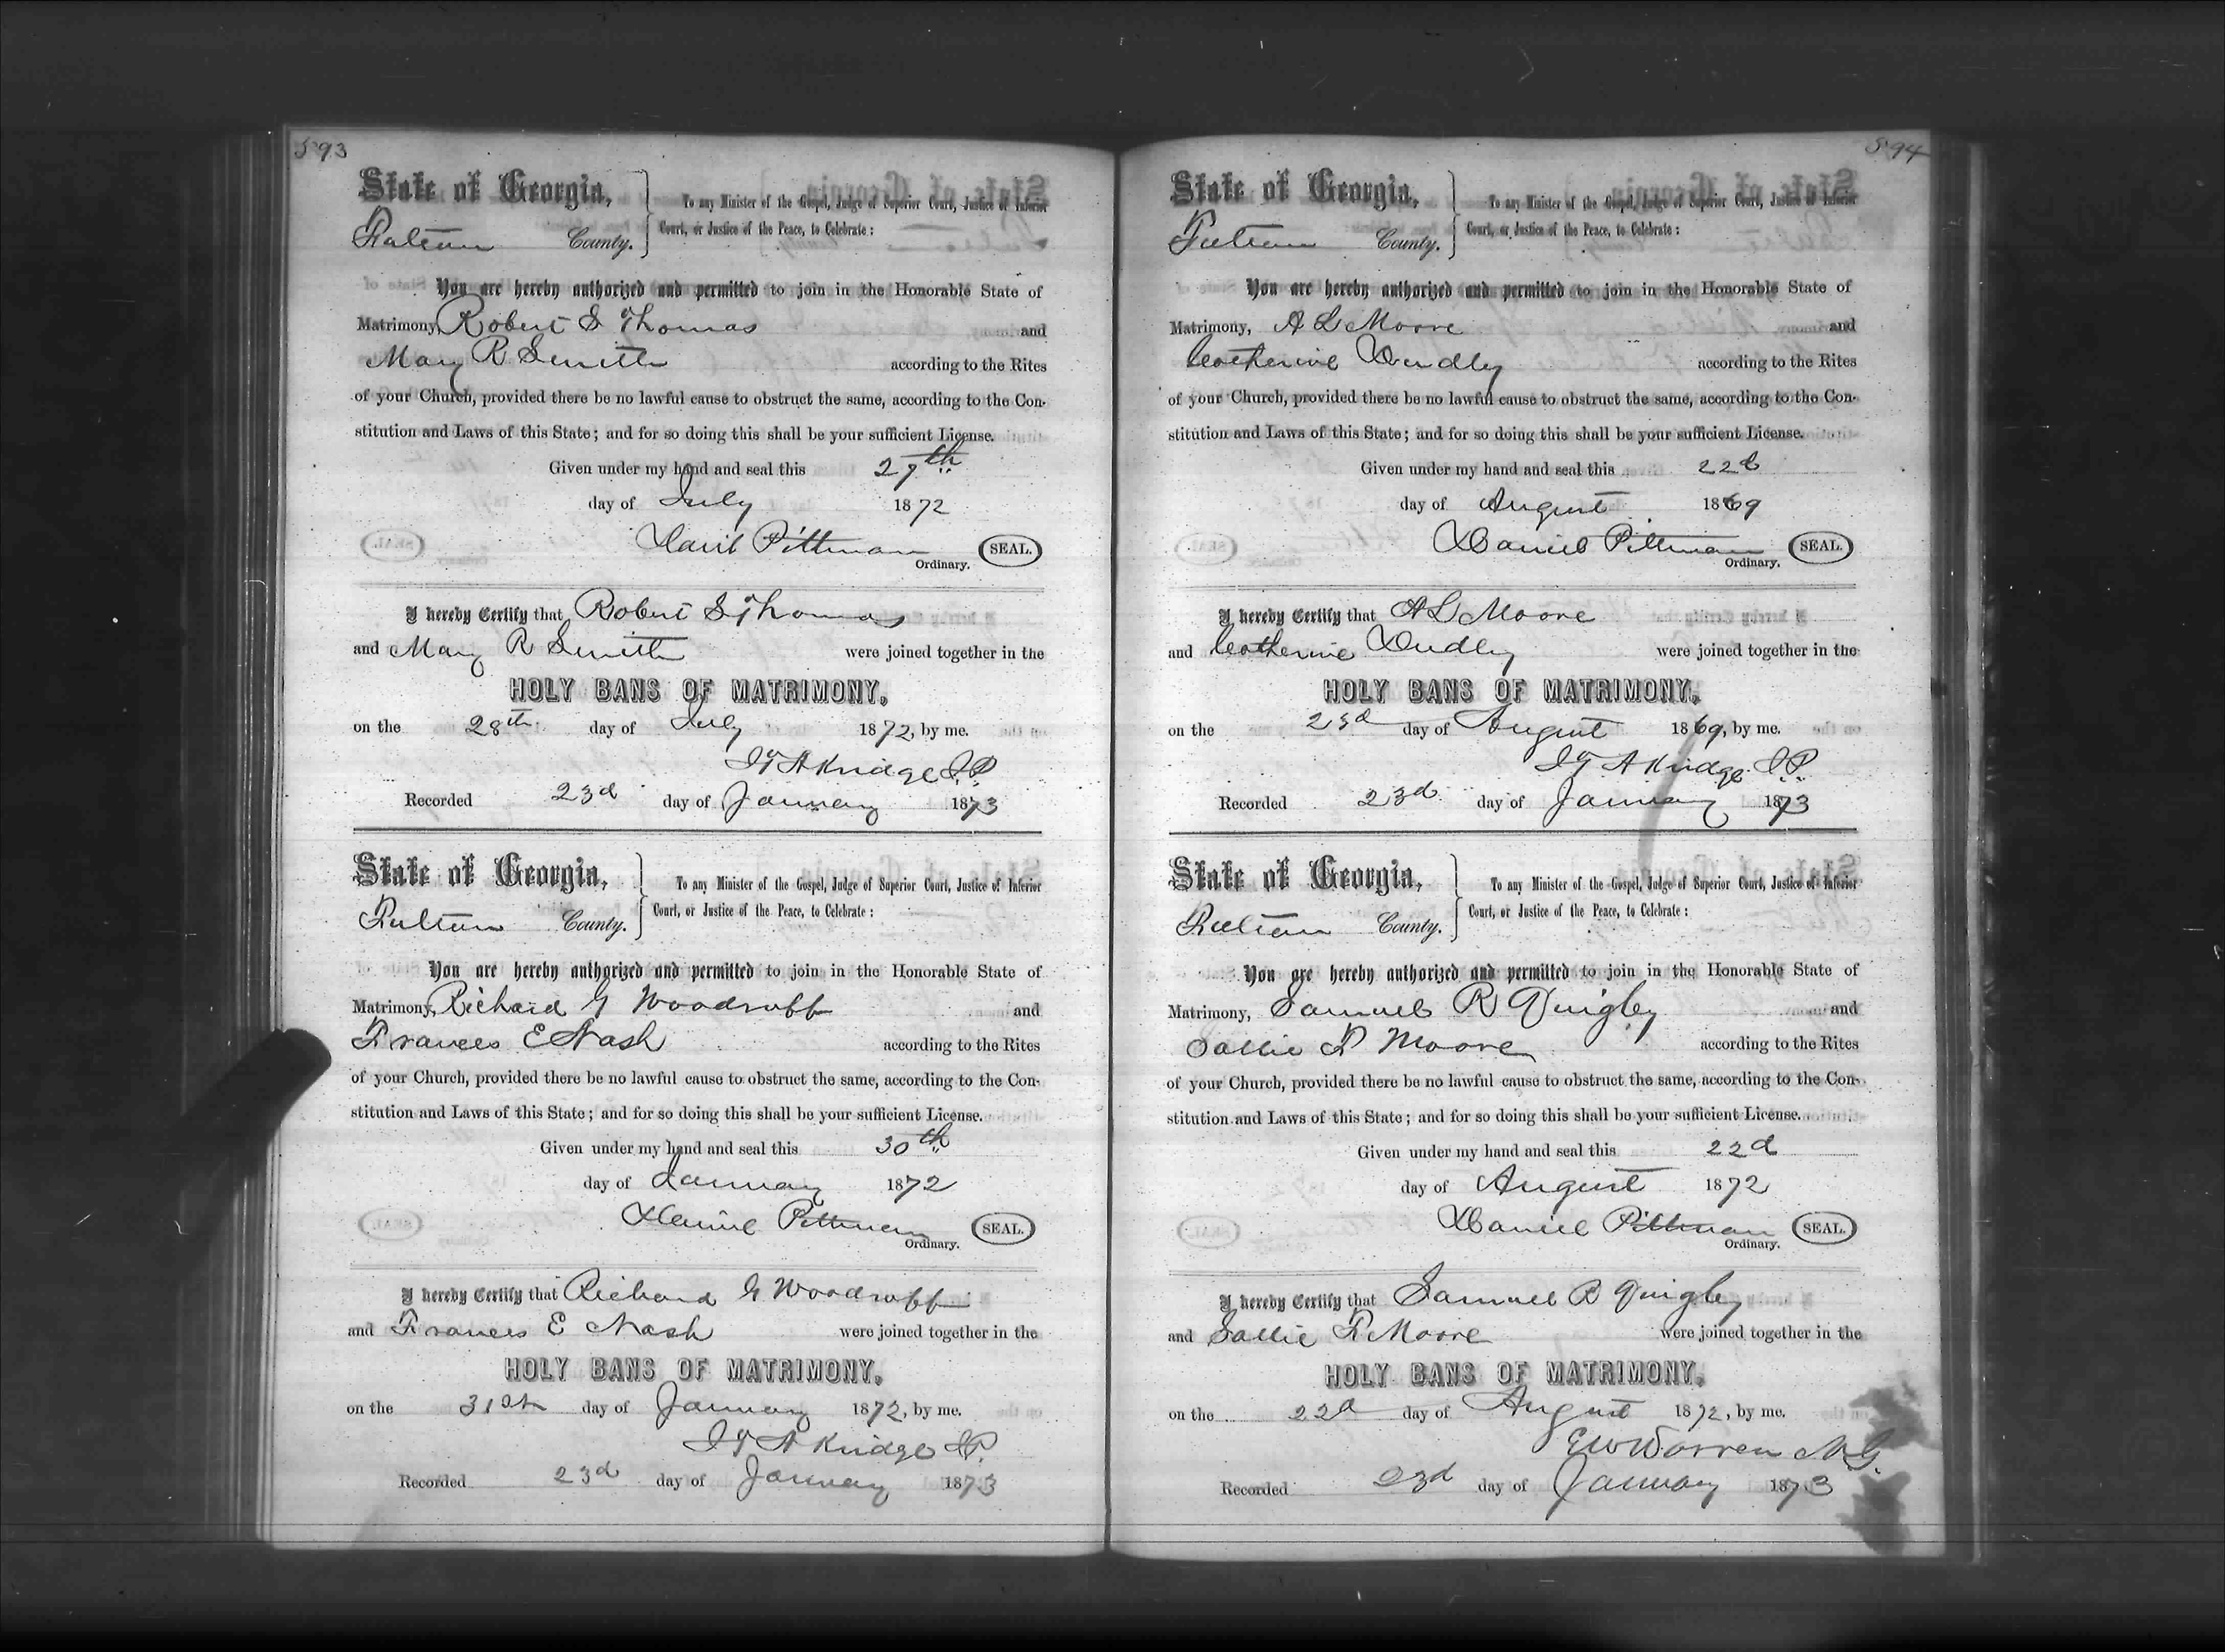 593
State of Georgia,
Fulton County.
To any Minister of the Gospel, Judge of Superior Court, Justice of Inferior
Court, or Justice of the Peace, to Celebrate:
You are hereby authorized and permitted to join in the Honorable State of
Matrimony, Robert S Thomas and
Mary R Smith according to the Rites
of your Church, provided there be no lawful cause to obstruct the same, according to the Con-
stitution and Laws of this State; and for so doing this shall be your sufficient License.
Given under my hand and seal this 27th
day of July 1872
Daniel Pittman SEAL.
Ordinary.
I hereby Certify that Robert S Thomas
and Mary R Smith were joined together in the
HOLY BANS OF MATRIMONY,
on the 28th day of July 1872, by me.
Akridge J.P.
Recorded 23d day of January 1873
State of Georgia,
Fulton County.
To any Minister of the Gospel, Judge of Superior Court, Justice of Inferior
Court, or Justice of the Peace, to Celebrate:
You are hereby authorized and permitted to join in the Honorable State of
Matrimony, Richard G Woodruff and
Frances E Nash according to the Rites
of your Church, provided there be no lawful cause to obstruct the same, according to the Con-
stitution and Laws of this State; and for so doing this shall be your sufficient License.
Given under my hand and seal this 30th
day of January 1872
Daniel Pittman SEAL.
Ordinary.
I hereby Certify that Richard G Woodruff
and Frances E Nash were joined together in the
HOLY BANS OF MATRIMONY,
on the 31st day of January 1872, by me.
Akridge J.P.
Recorded 23d day of January 1873
594
State of Georgia,
Fulton County.
To any Minister of the Gospel, Judge of Superior Court, Justice of Inferior
Court, or Justice of the Peace, to Celebrate:
You are hereby authorized and permitted to join in the Honorable State of
Matrimony, A L Moore and
Catherine Dudley according to the Rites
of your Church, provided there be no lawful cause to obstruct the same, according to the Con-
stitution and Laws of this State; and for so doing this shall be your sufficient License.
Given under my hand and seal this 22d
day of August 1869
Daniel Pittman SEAL.
Ordinary.
I hereby Certify that A L Moore
and Catherine Dudley were joined together in the
HOLY BANS OF MATRIMONY,
on the 23d day of August 1869, by me.
Akridge J.P.
Recorded 23d day of January 1873
State of Georgia,
Fulton County.
To any Minister of the Gospel, Judge of Superior Court, Justice of Inferior
Court, or Justice of the Peace, to Celebrate:
You are hereby authorized and permitted to join in the Honorable State of
Matrimony, Samuel R Quigley and
Sallie P Moore according to the Rites
of your Church, provided there be no lawful cause to obstruct the same, according to the Con-
stitution and Laws of this State; and for so doing this shall be your sufficient License.
Given under my hand and seal this 22d
day of August 1872
Daniel Pittman SEAL.
Ordinary.
I hereby Certify that Samuel R Quigley
and Sallie P Moore were joined together in the
HOLY BANS OF MATRIMONY,
on the 22d day of August 1872, by me.
E W Warren M.G.
Recorded 23d day of January 1873